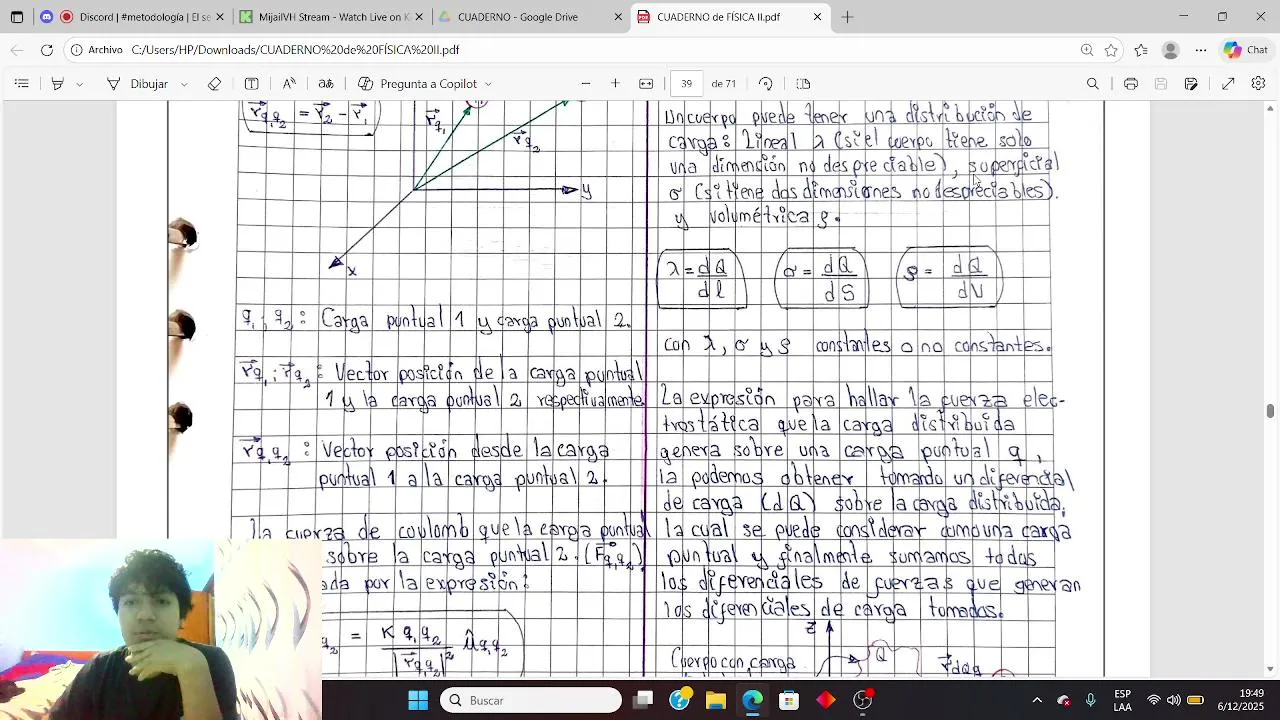 Discord | "metodología | El se
MijailVH Stream - Watch Live on Ki
CUADERNO - Google Drive
CUADERNO de FÍSICA II.pdf
Archivo C:/Users/HP/Downloads/CUADERNO%20de%20FÍSICA%20II.pdf
Chat
Dibujar
Pregunta a Copilot
39 de 71
r⃗q₁q₂ = r⃗₂ - r⃗₁
r⃗q₁
r⃗q₂
y
x
q₁ ; q₂ : Carga puntual 1 y carga puntual 2.
r⃗q₁ ; r⃗q₂ : Vector posición de la carga puntual
1 y la carga puntual 2 respectivamente
r⃗q₁q₂ : Vector posición desde la carga
puntual 1 a la carga puntual 2.
La fuerza de coulomb que la carga puntual
sobre la carga puntual 2. (F⃗q₁q₂)
ada por la expresión:
q₂ = K q₁ q₂ / |r⃗q₁q₂|² û q₁q₂
Un cuerpo puede tener una distribución de
carga: Lineal λ (si el cuerpo tiene solo
una dimensión no despreciable), superficial
σ (si tiene dos dimensiones no despreciables).
y volumétrica ρ.
λ = dQ/dl σ = dQ/dS ρ = dQ/dV
con λ, σ y ρ constantes o no constantes.
La expresión para hallar la fuerza elec-
trostática que la carga distribuida
genera sobre una carga puntual q,
la podemos obtener tomando un diferencial
de carga (dQ) sobre la carga distribuida,
la cual se puede considerar como una carga
puntual y finalmente sumamos todas
los diferenciales de fuerzas que generan
los diferenciales de carga tomados.
z
Cuerpo con carga
Q
r⃗dQq
Buscar
ESP
LAA
19:49
6/12/2025